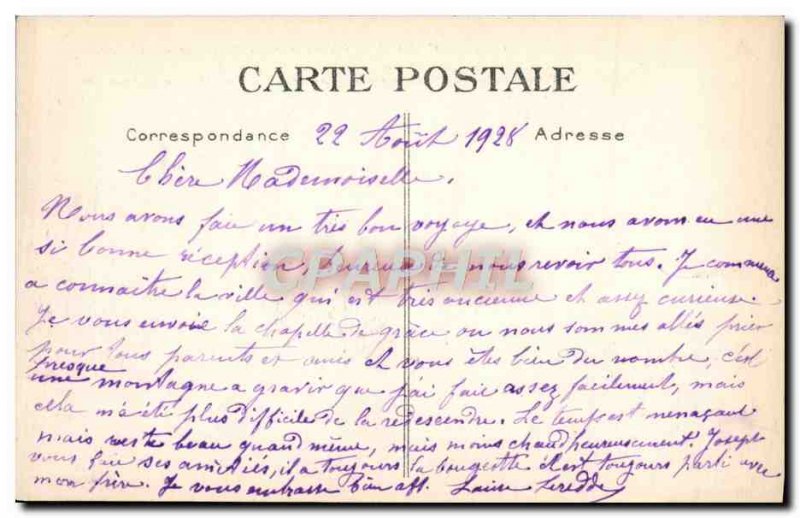 CARTE POSTALE
Correspondance 22 Août 1928 Adresse
Chère Mademoiselle.
Nous avons fait un très bon voyage, et nous avons eu une
si bonne réception, heureux de nous revoir tous. Je commence
a connaitre la ville qui est très ancienne et assez curieuse.
Je vous envoie la chapelle de grâce ou nous sommes allés prier
pour tous parents et amis et vous êtes bien du nombre, c'est
presque
une montagne a gravir que j'ai fait assez facilement, mais
cela m'a été plus difficile de la redescendre. Le temps est menaçant
mais reste beau quand même, mais moins chaud heureusement. Joseph
vous ses amitiés, il a toujours la bougeotte il est toujours parti avec
mon frère. Je vous embrasse bien aff.
CPAPHIL